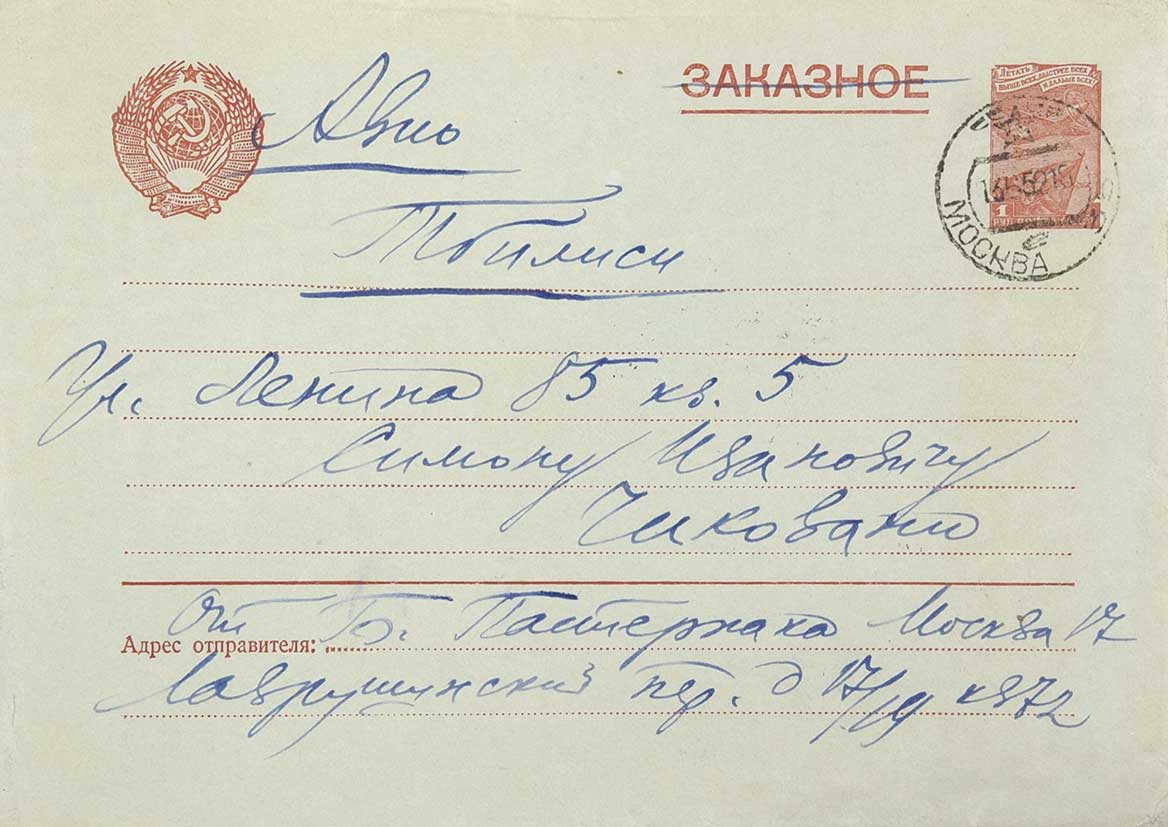 Авиа
ЗАКАЗНОЕ
ЛЕТАТЬ
ВЫШЕ ВСЕХ, БЫСТРЕЕ ВСЕХ
И ДАЛЬШЕ ВСЕХ!
1
МОСКВА
Тбилиси
Ул. Ленина 85 кв. 5
Симону Ивановичу
Чиковани
От Б. Пастернака Москва 17
Адрес отправителя:
Лаврушинский пер. д 17/19 кв 72